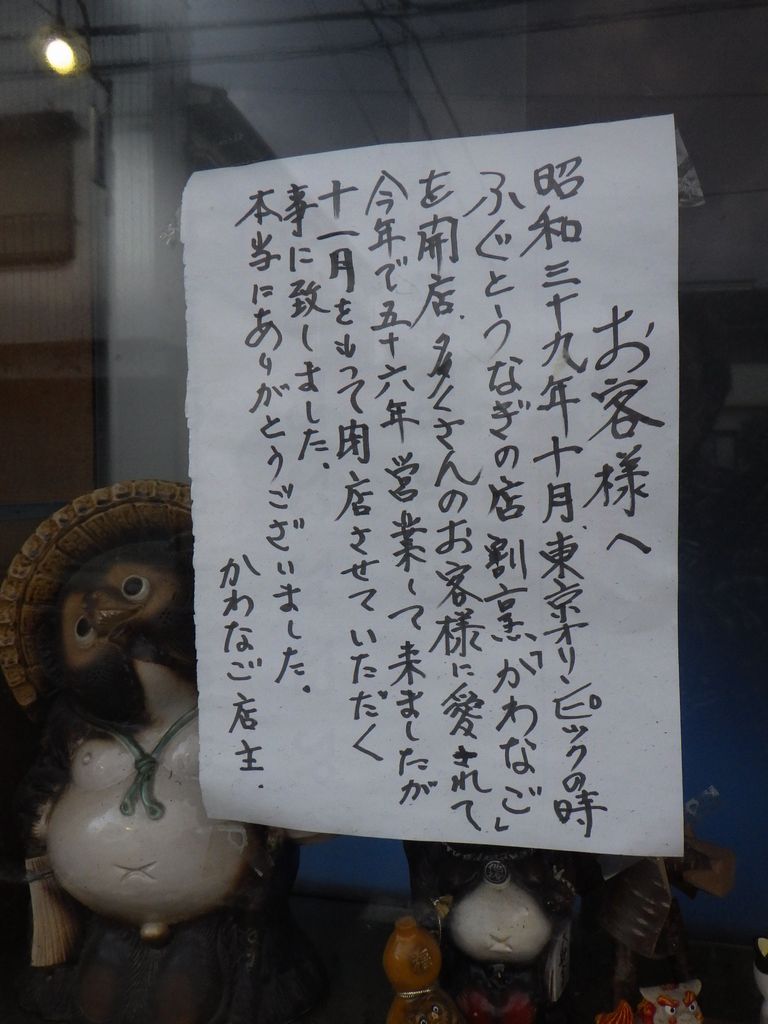 お客様へ
昭和三十九年十月、東京オリンピックの時
ふぐとうなぎの店 割烹「かわなご」
を開店、多くさんのお客様に愛されて、
今年で五十六年営業して来ましたが
十一月をもって閉店させていただく
事に致しました、
本当にありがとうございました。
かわなご店主.